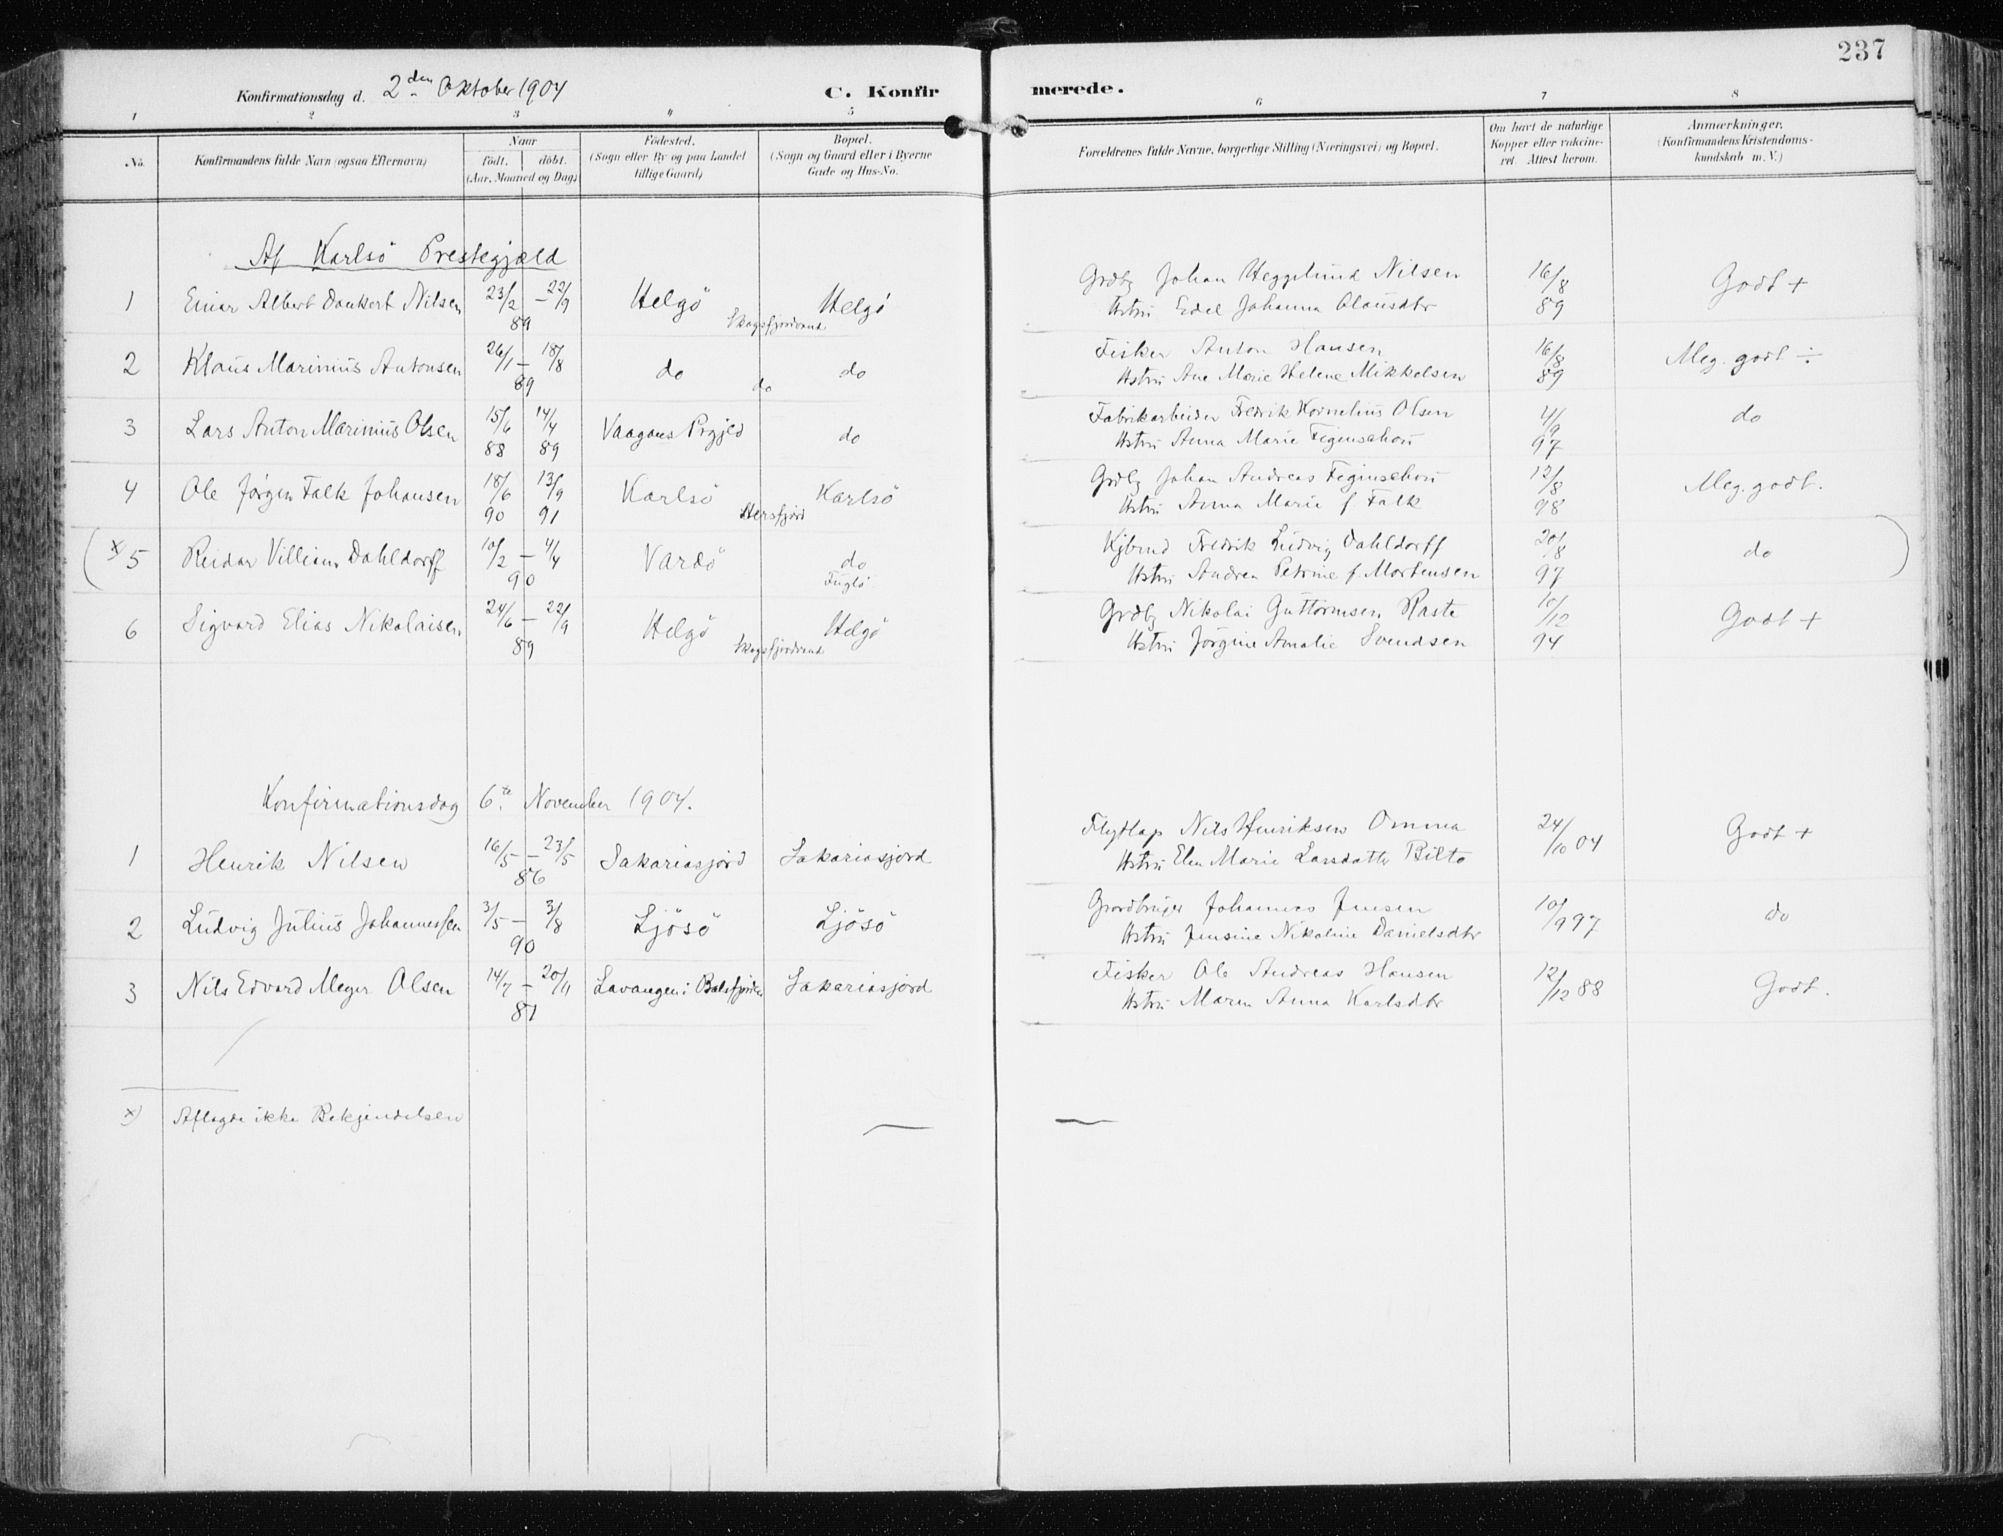 237
Konfirmationsdag d. 2den Oktober 1904
C. Konfirmerede.
1 2 3 4 5 6 7 8
No.
Konfirmandens fulde Navn (ogsaa Efternavn)
Naar
født. døbt.
(Aar, Maaned og Dag)
Fødested.
(Sogn eller By og paa Landet
tillige Gaard)
Bopæl.
(Sogn og Gaard eller i Byerne
Gade og Hus-No.
Forældrenes fulde Navne, borgerlige Stilling (Næringsvei) og Bopæl.
Om havt de naturlige
Kopper eller vakcine-
ret. Attest herom.
Anmærkninger.
(Konfirmandens Kristendoms-
kundskab m. V.)
Af Karlsö Prestegjæld
1 Einar Albert Dankert Nilsen 23/2 – 22/9 89 Helgö Helgö Skogsfjordvand
Grdbg Johan Heggelund Nilsen 16/8
Hstru Edel Johanna Olausdtr 89 Godt +
2 Klaus Marinius Antonsen 26/1 – 18/8 89 do do do
Fisker Anton Hansen 16/8
Hstru Ane Marie Helene Mikkelsen 89 Meg. godt ÷
3 Lars Anton Marinius Olsen 15/6 88 14/4 89 Vaagans Prgjld do
Fabrikarbeider Fredrik Kornelius Olsen 4/9
Hstru Anna Marie Figenschou 97 do
4 Ole Jörgen Falk Johansen 18/6 90 13/9 91 Karlsö Karlsö
Grdbg Johan Andreas Figenschou 12/8
Hstru Anna Marie f Falk 98 Meg. godt.
x) 5 Reidar Villiam Dahldorff 10/2 – 4/4 90 Vardö do Fuglö
Kjbmd Fredrik Ludvig Dahldorff 20/8
Hstru Andrea Petrine f. Mortensen 97 do
6 Sigvard Elias Nikolaisen 24/6 – 22/9 89 Helgö Helgö Skogsfjordvand
Grdbg Nikolai Guttormsen Raste 10/12
Hstru Jörgine Amalie Svendsen 94 Godt +
Konfirmationsdag 6te November 1904.
1 Henrik Nilsen 16/5 – 23/5 86 Sakariasjord Sakariasjord
Flytlap Nils Henriksen Omma 24/10 04
Hstru Elen Marie Larsdatter Bilto Godt +
2 Ludvig Julius Johannessen 3/5 – 3/8 90 Ljösö Ljösö
Gaardbruger Johannes Jensen 10/9 97
Hstru Jensine Nikoline Danielsdtr do
3 Nils Edvard Meyer Olsen 14/7 – 20/11 87 Lavangen i Balsfjorden Sakariasjord
Fisker Ole Andreas Hansen 12/12 88
Hstru Maren Anna Karlsdtr Godt.
x) Aflagde ikke Bekjendelsen